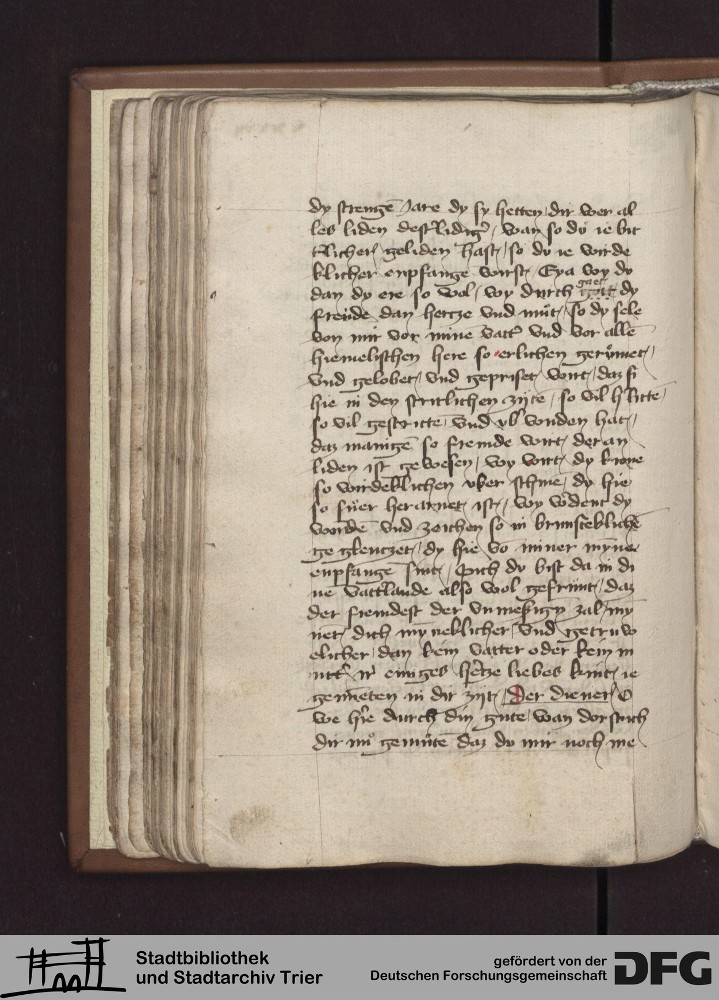 dy strenge Jare dy sy hetten dir wer al
les liden des lidig wan so du ie bit
tlicher geliden hast so du ie wirde
klicher enpfange wirst Eya woy du
dan dy ere so wol woy durch gaet dy
freüde dan hertze vnd müt so dy sele
von mir vor mine vatt vnd vor alle
hiemelischen here so erlichen gerümet
vnd gelobet vnd gepriset wirt daz si
hie in den stritlichen zijte so vil h litte
so vil gestritte vnd vb wonden hat
daz manige so fremde wirt der an
liden ist gewesen woy wirt dy krone
so wirdeklichen vber schine dy hie
so süer herarnet ist woy werdent dy
wonde vnd zeichen so in brunsteklich
ge glentzet dy hie vo miner myne
enpfange sint Sich du bist da in di
ne vattlande also wol gefrint daz
der fremdest der vnmessigy zal my
net dich mynneklicher vnd getruw
elicher dan kein vatter oder kein m
utt ir einiges hertze liebes kint ie
gemeten in dir zijt Der diener O
we hre durch din gute wan dorstich
dir nu gemüte daz du mir noch me
Stadtbibliothek
und Stadtarchiv Trier
gefördert von der
Deutschen Forschungsgemeinschaft
DFG